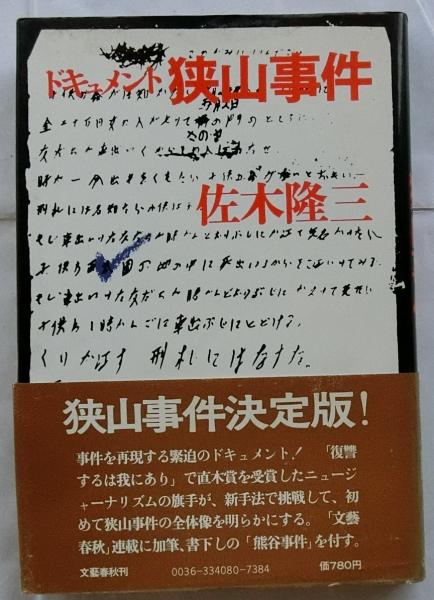 このかみにツツんでこい
ドキュメント 狭山事件
五月2日
金二十万円女の人がもツて
さのヤ
の門のところにいろ。
友だちが車出いくからその人にわたせ
時が一分出もをくれたら子供の命がないとおもい。
刑札には名知たら小供は
佐木隆三
もし車出いツた友だちが時かんどおりぶじにかえて気名かツたら
子供わ西武園の池の中に死出いるからそこエいッてみろ。
もし車出いツた友だちが時かんどおりぶじにかえツて気たら
子供わ1時かんごに車出ぶじにとどける。
くりかえす 刑札にはなすな。
狭山事件決定版!
事件を再現する緊迫のドキュメント! 「復讐
するは我にあり」で直木賞を受賞したニュージ
ャーナリズムの旗手が、新手法で挑戦して、初
めて狭山事件の全体像を明らかにする。「文藝
春秋」連載に加筆、書下しの「熊谷事件」を付す。
文藝春秋刊 0036-334080-7384 価780円